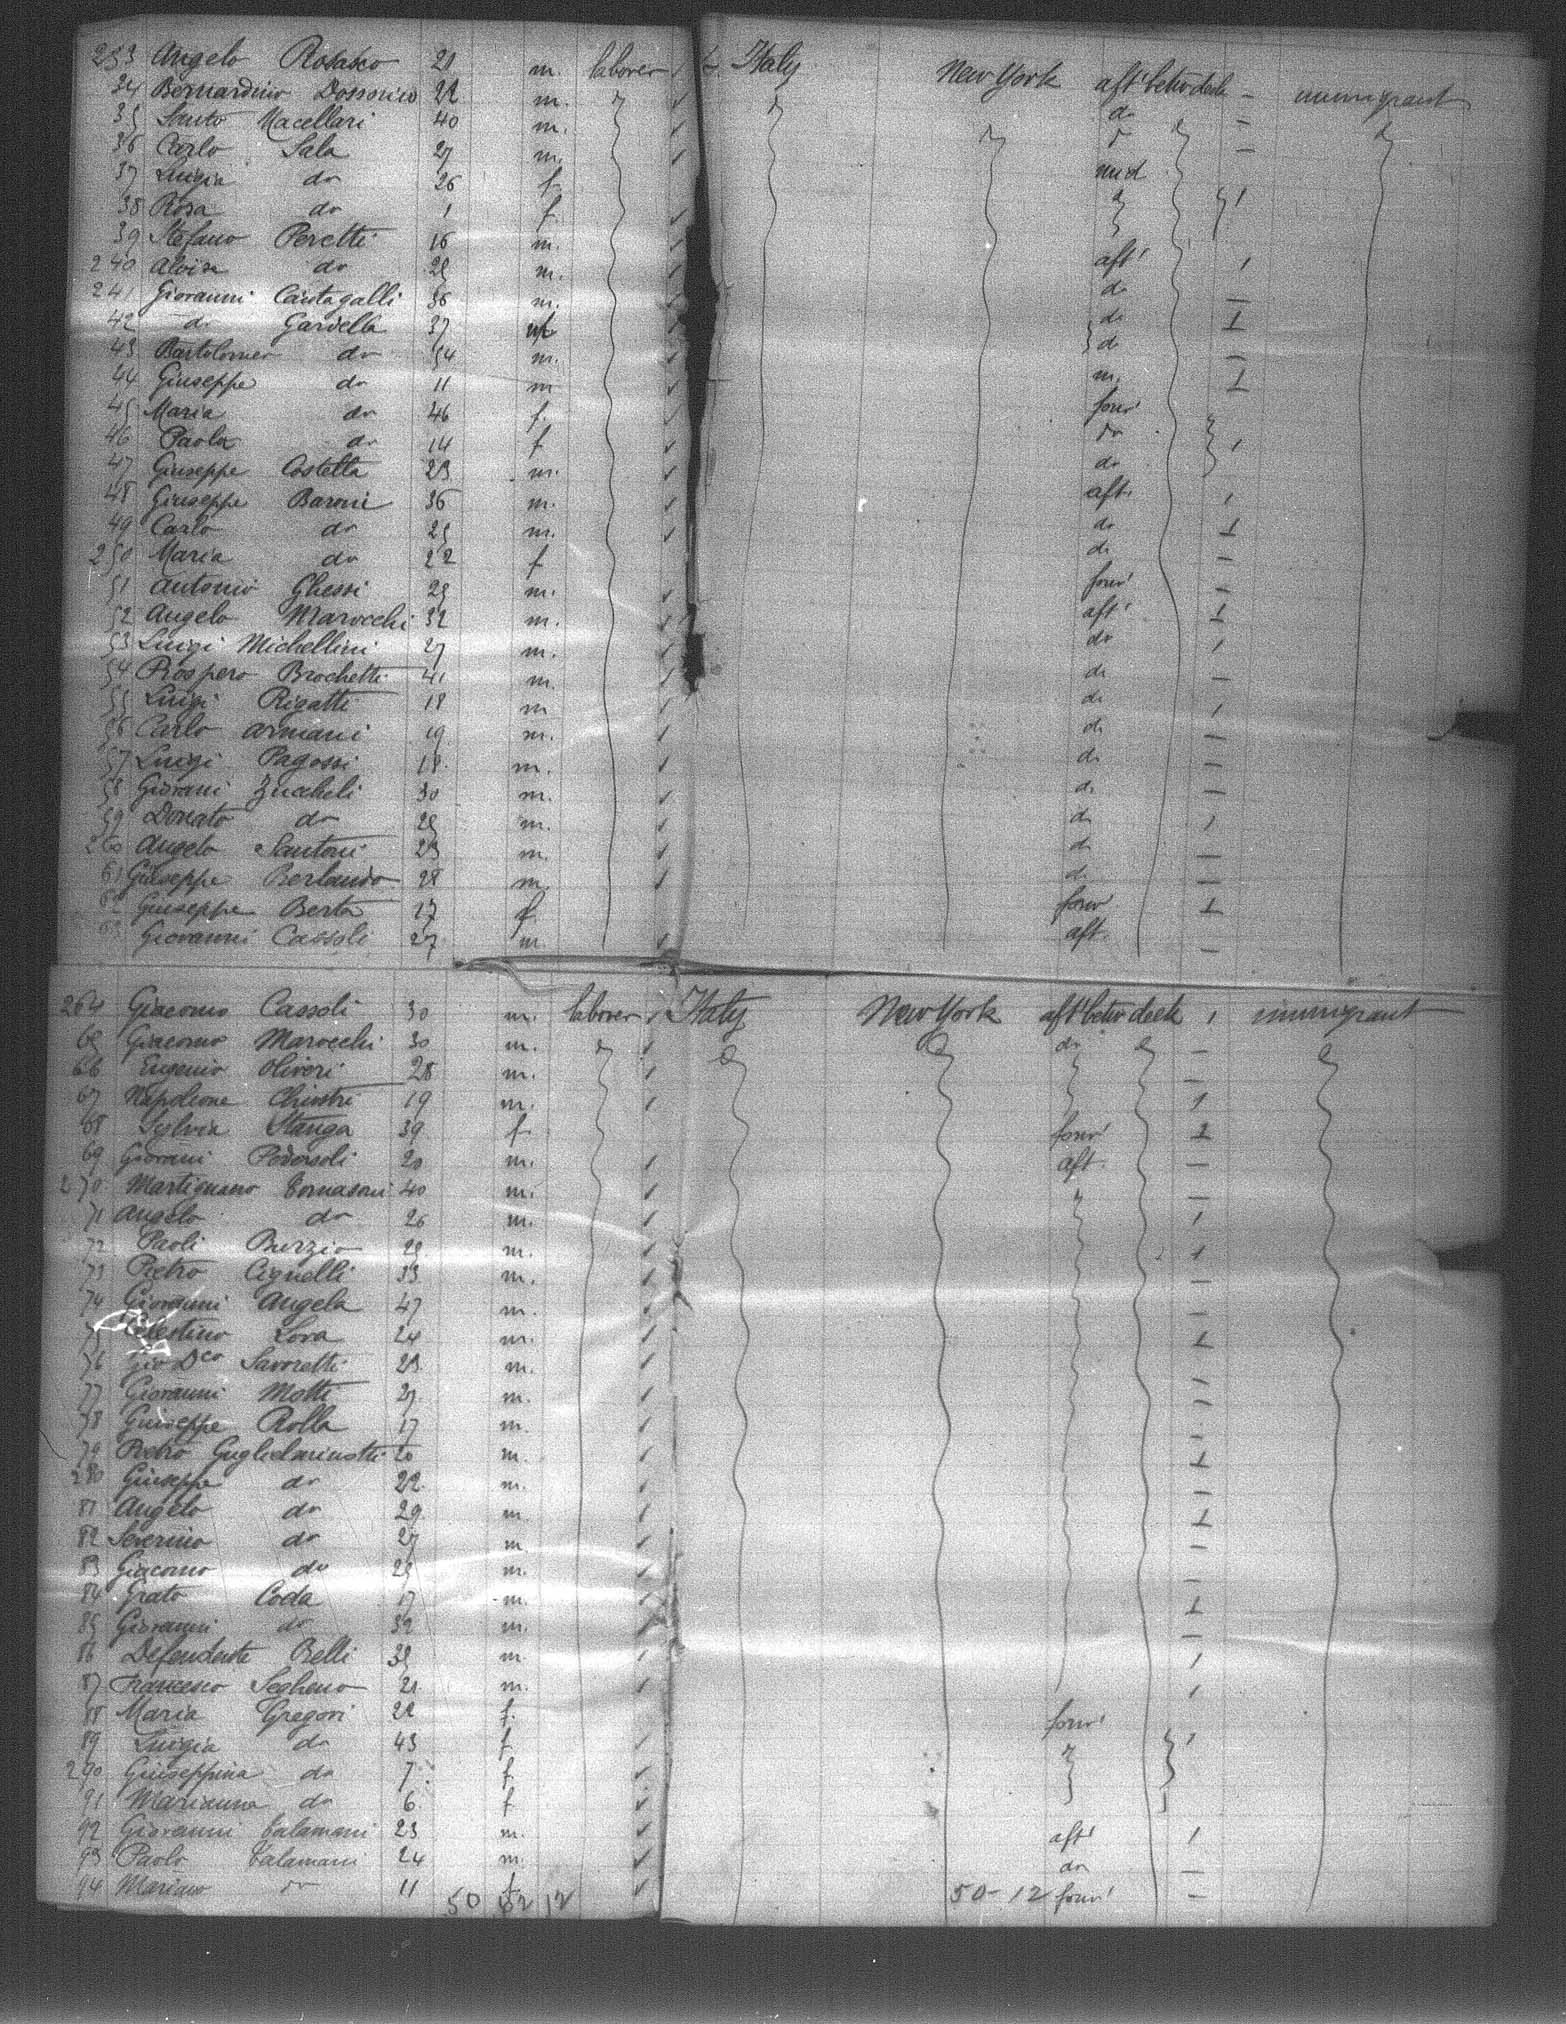 233 Angelo Rosasco 21 m. laborer Italy New York aft' betw deck – immigrant
34 Bernardino Dossorico 22 m. do –
35 Santo Macellari 40 m. do –
36 Carlo Sala 27 m. mid
37 Luigia do 26 f. 1
38 Rosa do 1 f.
39 Stefano Peretti 16 m. aft' 1
240 Alvise do 25 m. do –
241 Giovanni Cantagalli 36 m. do 1
42 do Gardella 37 do –
43 Bartolomeo do 54 m. m. 1
44 Giuseppe do 11 m forw'
45 Maria do 46 f. do
46 Paola do 14 f do 1
47 Giuseppe Costella 23 m. aft. 1
48 Giuseppe Baroni 36 m. do 1
49 Carlo do 25 m. do –
250 Maria do 22 f forw' –
51 Antonio Ghessi 25 m. aft' 1
52 Angelo Marocchi 32 m. do 1
53 Luigi Michellini 27 m. do –
54 Prospero Brochetti 41 m. do 1
55 Luigi Rigatti 18 m do –
56 Carlo Armani 19 m. do –
57 Luigi Pagossi 18 m. do –
58 Giovani Zuccheli 30 m. do 1
59 Donato do 25 m. do –
260 Angelo Santoni 23 m. do –
61 Giuseppe Berlando 28 m. forw' 1
62 Giuseppe Berta 17 f. aft. –
63 Giovanni Cassoli 27 m.
264 Giacomo Cassoli 30 m. laborer Italy New York aft' betw deck 1 immigrant
65 Giacomo Marocchi 30 m. do –
66 Eugenio Oliveri 28 m. –
67 Napoleone Chiostri 19 m. 1
68 Sylvia Stanga 39 f. forw' 1
69 Giovani Pedersoli 20 m. aft. –
270 Martignano Tomasoni 40 m. –
71 Angelo do 26 m. 1
72 Paoli Burzio 29 m. 1
73 Pietro Cignelli 33 m. –
74 Giovanni Angela 47 m. –
75 Celestino Lova 24 m. 1
76 Gio Dco Savoretti 23 m. –
77 Giovanni Motti 27 m. –
78 Giuseppe Rolla 17 m. –
79 Pietro Guglielminotti 20 m. 1
280 Giuseppe do 22 m. –
81 Angelo do 29 m 1
82 Severino do 27 m –
83 Giacomo do 25 m. –
84 Grato Coda 17 m. 1
85 Giovanni do 32 m. –
86 Defendente Belli 35 m 1
87 Francesco Segheno 21 m. 1
88 Maria Gregori 22 f. forw'
89 Luigia do 43 f 1
290 Giuseppina do 7 f
91 Marianna do 6 f
92 Giovanni Calamani 23 m. aft' 1
93 Paolo Calamani 24 m. do –
94 Mariano do 11 f forw' –
50 62 12 50-12